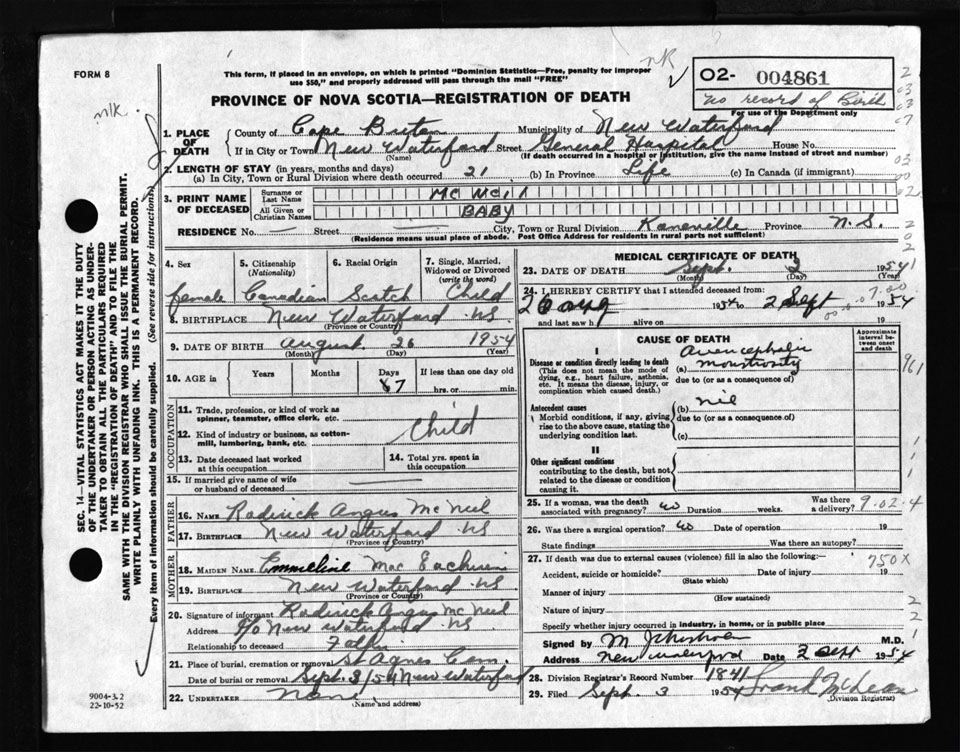 FORM 8
This form, if placed in an envelope, on which is printed "Dominion Statistics—Free, penalty for improper
use $50," and properly addressed will pass through the mail "FREE"
nk
02- 004861
No record of Birth
For use of the Department only
PROVINCE OF NOVA SCOTIA—REGISTRATION OF DEATH
1. PLACE OF DEATH
County of Cape Breton Municipality of New Waterford
If in City or Town New Waterford Street General Hospital House No.
(Name) (If death occurred in a hospital or institution, give the name instead of street and number)
2. LENGTH OF STAY (in years, months and days)
(a) In City, Town or Rural Division where death occurred 21 (b) In Province Life (c) In Canada (if immigrant)
3. PRINT NAME OF DECEASED
Surname or Last Name MC NEIL
All Given or Christian Names BABY
RESIDENCE No. — Street — City, Town or Rural Division Province N.S.
(Residence means usual place of abode. Post Office Address for residents in rural parts not sufficient)
4. Sex female
5. Citizenship (Nationality) Canadian
6. Racial Origin Scotch
7. Single, Married, Widowed or Divorced (write the word) Child
8. BIRTHPLACE New Waterford NS
(Province or Country)
9. DATE OF BIRTH August 26 1954
(Month) (Day) (Year)
10. AGE in Years Months Days 7 If less than one day old
hrs. or min.
OCCUPATION
11. Trade, profession, or kind of work as spinner, teamster, office clerk, etc.
12. Kind of industry or business, as cotton-mill, lumbering, bank, etc.
Child
13. Date deceased last worked at this occupation
14. Total yrs. spent in this occupation
15. If married give name of wife or husband of deceased
FATHER
16. NAME Roderick Angus McNeil
17. BIRTHPLACE New Waterford NS
(Province or Country)
MOTHER
18. MAIDEN NAME Emmeline Mac Eachern
19. BIRTHPLACE New Waterford NS
(Province or Country)
20. Signature of informant Roderick Angus McNeil
Address New Waterford NS
Relationship to deceased Father
21. Place of burial, cremation or removal St Agnes Cem.
Date of burial or removal Sept. 3/54 New Waterford
22. UNDERTAKER None
MEDICAL CERTIFICATE OF DEATH
23. DATE OF DEATH Sept. 2 1954
(Month) (Day) (Year)
24. I HEREBY CERTIFY that I attended deceased from:
26 Aug 1954 to 2 Sept 1954
and last saw h alive on 19
CAUSE OF DEATH
Approximate interval between onset and death
I
Disease or condition directly leading to death
(This does not mean the mode of dying, e.g., heart failure, asthenia, etc. It means the disease, injury, or complication which caused death.)
(a) Anencephalic monstrosity
due to (or as a consequence of)
Antecedent causes
Morbid conditions, if any, giving rise to the above cause, stating the underlying condition last.
(b) nil
due to (or as a consequence of)
(c)
II
Other significant conditions
contributing to the death, but not related to the disease or condition causing it.
25. If a woman, was the death associated with pregnancy? no Duration weeks. Was there a delivery?
9-02-4
26. Was there a surgical operation? no Date of operation 19
State findings Was there an autopsy?
27. If death was due to external causes (violence) fill in also the following:—
750X
Accident, suicide or homicide? Date of injury 19
(State which)
Manner of injury
(How sustained)
Nature of injury
Specify whether injury occurred in industry, in home, or in public place
Signed by M. D.
Address New Waterford Date 2 Sept 1954
28. Division Registrar's Record Number 1841
29. Filed Sept. 3 1954 Frank McLean
(Division Registrar)
SEC. 14—VITAL STATISTICS ACT MAKES IT THE DUTY
OF THE UNDERTAKER OR PERSON ACTING AS UNDER-
TAKER TO OBTAIN ALL THE PARTICULARS REQUIRED
IN THE "REGISTRATION OF DEATH" AND TO FILE THE
SAME WITH THE DIVISION REGISTRAR WHO SHALL ISSUE THE BURIAL PERMIT.
WRITE PLAINLY WITH UNFADING INK. THIS IS A PERMANENT RECORD.
Every item of information should be carefully supplied. (See reverse side for instructions)
9004-3.2
22-10-52